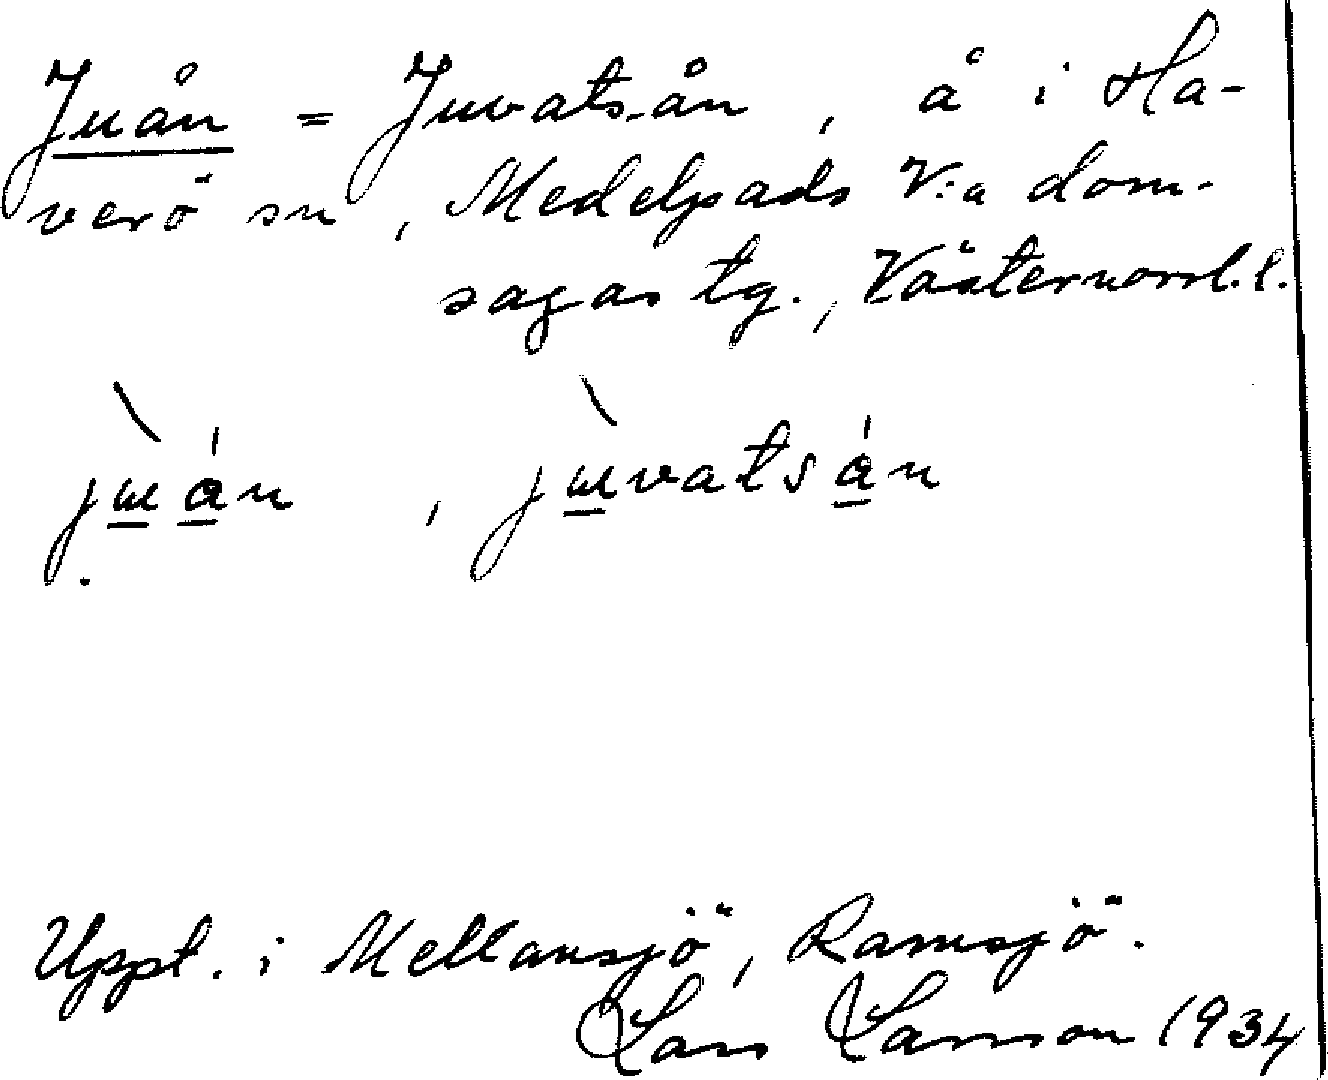 Juån = Juvatsån, å i Ha-
verö sn, Medelpads V:a dom-
sagas tg., Västernorrl. l.
juån, juvatsån
Uppt. i Mellansjö, Ramsjö.
Lars Larsson 1934